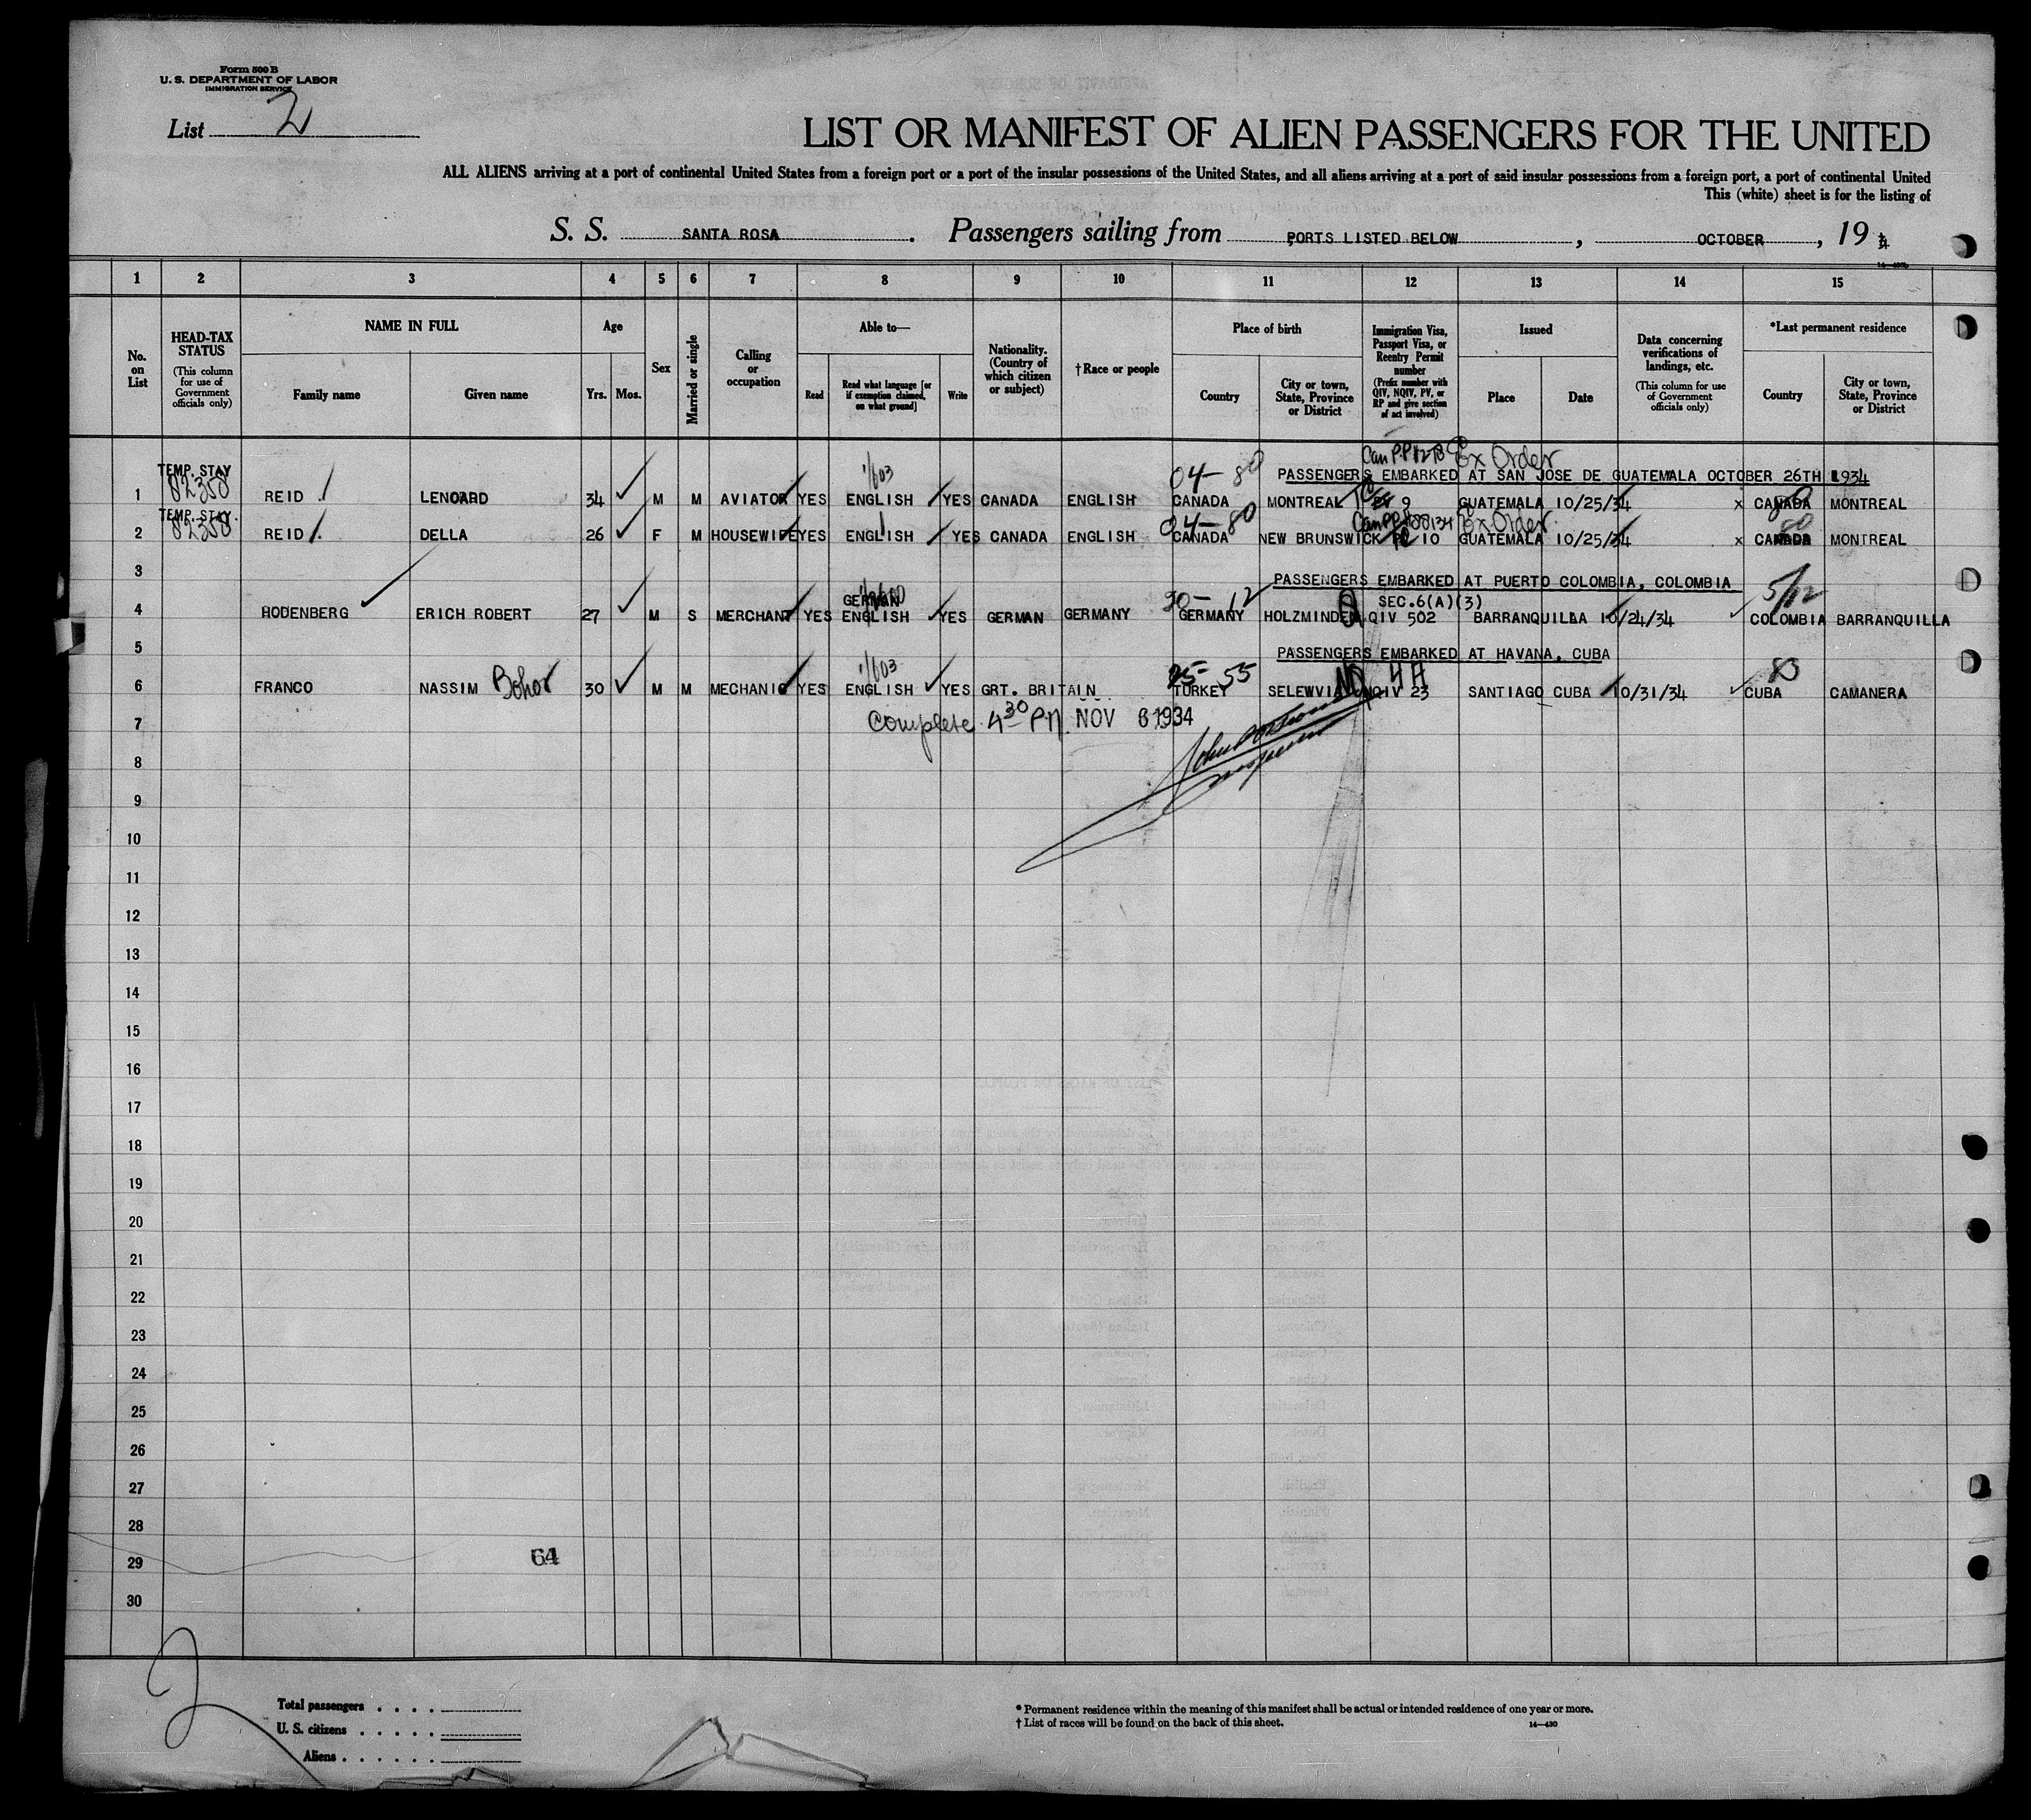 Form 500 B
U. S. DEPARTMENT OF LABOR
IMMIGRATION SERVICE
List 2
LIST OR MANIFEST OF ALIEN PASSENGERS FOR THE UNITED
ALL ALIENS arriving at a port of continental United States from a foreign port or a port of the insular possessions of the United States, and all aliens arriving at a port of said insular possessions from a foreign port, a port of continental United
This (white) sheet is for the listing of
S. S. SANTA ROSA. Passengers sailing from PORTS LISTED BELOW, OCTOBER, 19 34
1 2 3 4 5 6 7 8 9 10 11 12 13 14 15
No. on List
HEAD-TAX STATUS
(This column for use of Government officials only)
NAME IN FULL
Family name
Given name
Age
Yrs.
Mos.
Sex
Married or single
Calling or occupation
Able to—
Read
Read what language [or if exemption claimed, on what ground]
Write
Nationality. (Country of which citizen or subject)
†Race or people
Place of birth
Country
City or town, State, Province or District
Immigration Visa, Passport Visa, or Reentry Permit number
(Prefix number with QIV, NQIV, PV, or RP and give section of act involved)
Issued
Place
Date
Data concerning verifications of landings, etc.
(This column for use of Government officials only)
*Last permanent residence
Country
City or town, State, Province or District
Ex Order
TEMP. STAY 04- 80 PASSENGERS EMBARKED AT SAN JOSE DE GUATEMALA OCTOBER 26TH 1934
82358 1/603
1 REID LENOARD 34 M M AVIATOR YES ENGLISH YES CANADA ENGLISH CANADA MONTREAL 9 GUATEMALA 10/25/34 x CANADA MONTREAL
TEMP. STAY. 04- 80 Ex Order 80
82358
2 REID DELLA 26 F M HOUSEWIFE YES ENGLISH YES CANADA ENGLISH CANADA NEW BRUNSWICK 10 GUATEMALA 10/25/34 x CANADA MONTREAL
3 PASSENGERS EMBARKED AT PUERTO COLOMBIA, COLOMBIA 5/12
GERMAN 30- 12 SEC.6(A)(3)
4 HODENBERG ERICH ROBERT 27 M S MERCHANT YES ENGLISH YES GERMAN GERMANY GERMANY HOLZMINDEN QIV 502 BARRANQUILLA 10/24/34 COLOMBIA BARRANQUILLA
5 PASSENGERS EMBARKED AT HAVANA, CUBA
1/603 25- 55 4A 83
6 FRANCO NASSIM Bohor 30 M M MECHANIC YES ENGLISH YES GRT. BRITAIN TURKEY SELEWVIA NQIV 23 SANTIAGO CUBA 10/31/34 CUBA CAMANERA
7 Complete 4 30 P.M. NOV 6 1934
8
9
10
11
12
13
14
15
16
17
18
19
20
21
22
23
24
25
26
27
28
29 64
30
2
Total passengers . . . .
U. S. citizens . . . . .
Aliens . . . . . .
* Permanent residence within the meaning of this manifest shall be actual or intended residence of one year or more.
† List of races will be found on the back of this sheet.
14—430